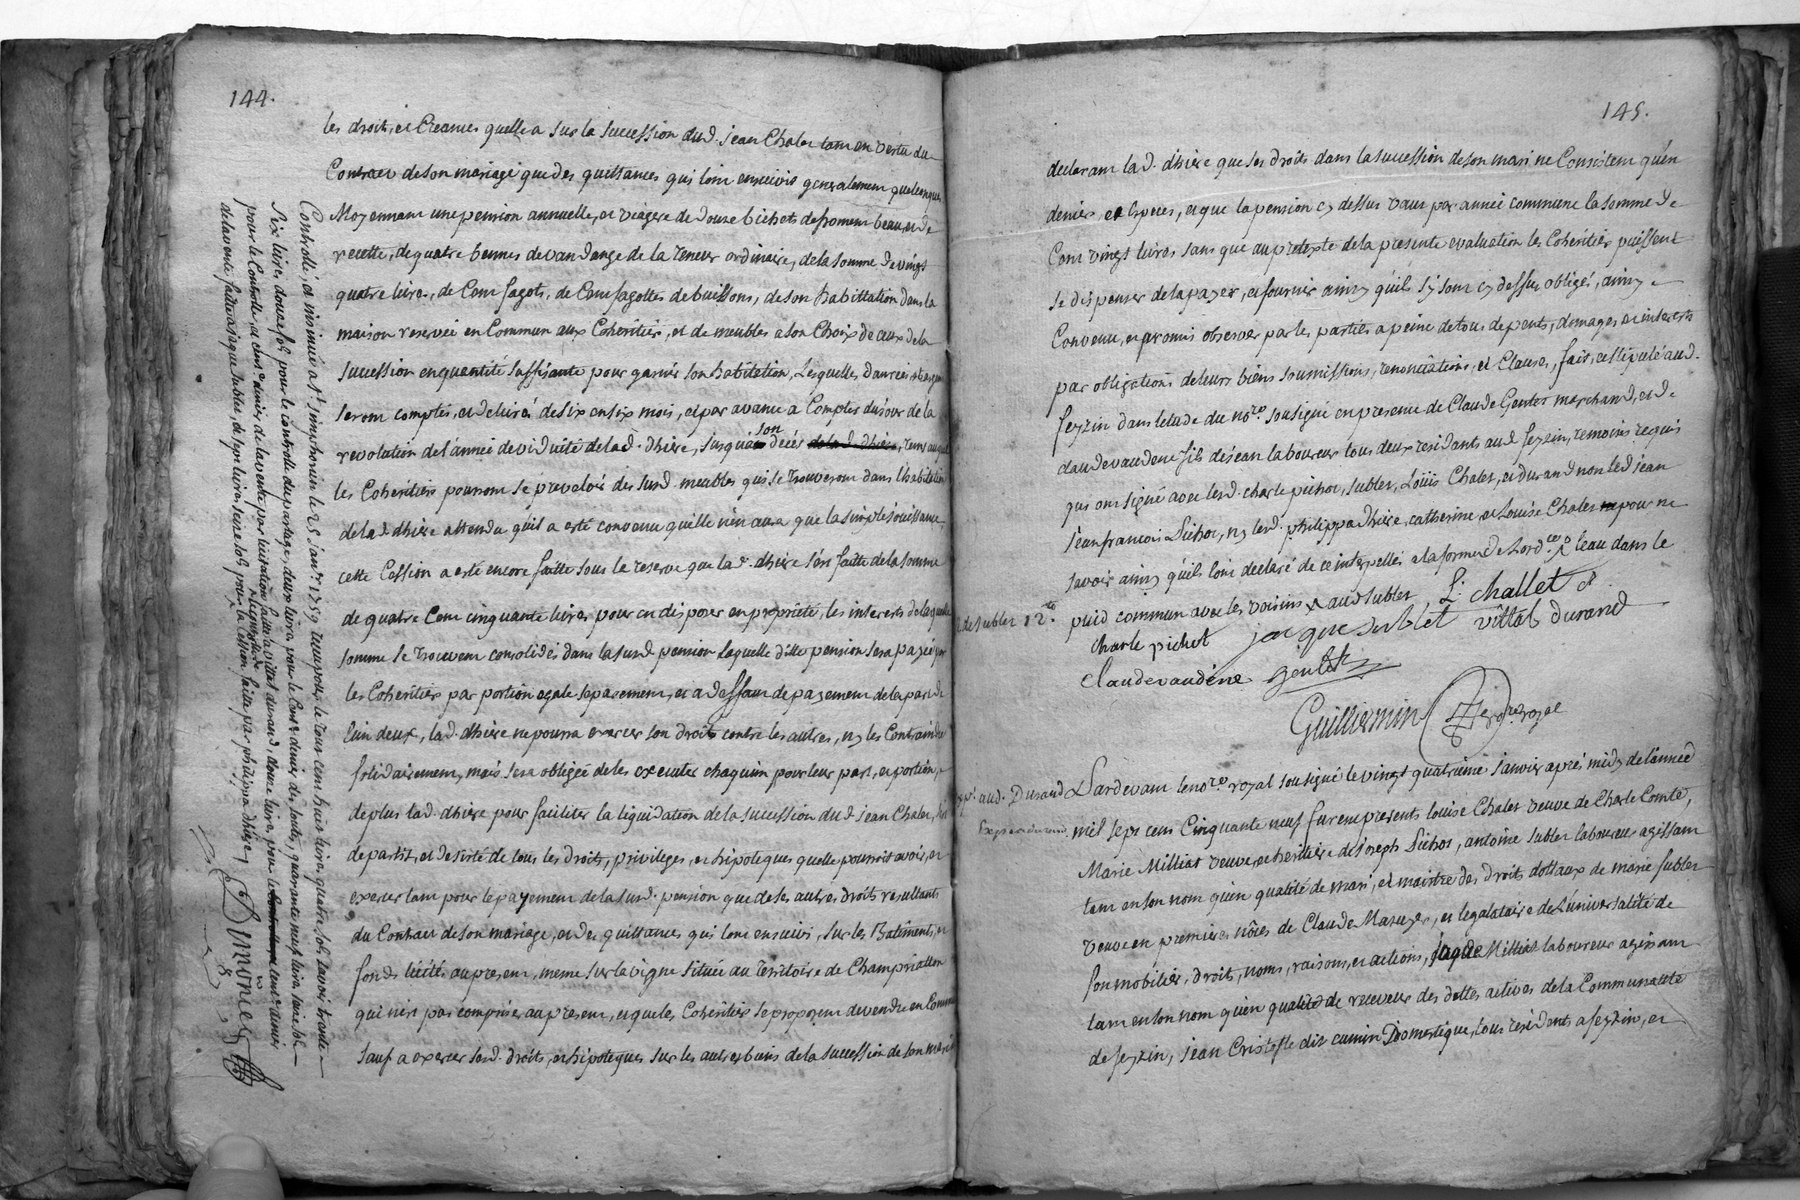 144.
les droits, et Creances quelle a sur la succession dud. jean Chalet tant en vertu du
Contract de son mariage que des quittances qui l'ont ensuivis generalement quelconques
Moyennant une pension annuelle, et viagere de douze bichets de froment beau, et de
recette, de quatre bennes de vandange de la teneur ordinaire, de la somme de vingt
quatre livres, de Cent fagots, de Cent fagottes de buissons, de son habittation dans la
maison reservée en Commun aux Coheritiers, et de meubles a son Choix de ceux de la
succession en quantité suffisante pour garnir son habitation, Lesquelles danrées et argent
seront comptés, et delivrés de six en six mois, et par avance a Compter du jour de la
revolution de l'année de viduité de lad. dhiere, jusqu'a son décés de lad. dhiere, tems auquel
les Coheritiers pourront se prevaloir des susd. meubles qui se trouveront dans l'habitation
de lad. dhiere attendu qu'il a esté convenu qu'elle n'en aura que la simple jouissance
cette Cession a esté encore faitte sous la reserve que lad. dhiere s'est faitte de la somme
de quatre Cent cinquante livres pour en disposer en proprieté, les interets de laquelle
somme se trouvent consolidés dans la susd. pension laquelle ditte pension sera payée par
les Coheritiers par portion egale separement, et a deffaut de payement de la part de
l'un deux, lad. dhiere ne pourra exercer son droit contre les autres, ny les Contraindre
solidairement, mais sera obligée de les executer chaqu'un pour leur part, et portion,
de plus lad. dhiere pour faciliter la liquidation de la succession dud. jean Chalet, s'est
departit, et desisté de tous les droits, privileges, et hipoteques quelle pourroit avoir, et
exercer tant pour le payement de la susd. pension que de ses autres droits resultants
du Contract de son mariage, et des quittances qui l'ont ensuivi, sur les Batiments, et
fonds licités au present, meme sur la vigne située au territoire de Champriallon
qui n'est pas comprise au present, et que les Coheritiers se proposent de vendre en Commun
sauf a exercer sesd. droits, et hipoteques sur les autres biens de la succession de son mari
Controllé, et insinué a St. simphorien le 25 janvr. 1759 receu pour le tout cent huit livres quatre sols savoir trente
six livres douze sols pour le controlle du partage, deux livres pour le Cent. denier des soutes, quarante neuf livres seize sols
pour le Controlle, et cent.e denier de la vente par licitation faitte a vittal durand, douze livres, pour le cent.e denier
de la vente faitte a jaque sublet, et sept livres seize sols pour la Cession faitte par philippa dhiere,
145.
declarant lad. dhiere que ses droits dans la succession de son mari ne Consistent qu'en
deniers, et especes, et que la pension cy dessus vaut par année commune la somme de
Cent vingt livres sans que au pretexte de la presente evaluation les Coheritiers puissent
se dispenser de la payer, et fournir ainsy qu'ils s'y sont cy dessus obligés, ainsy
Convenu, et promis observer par les parties a peine de tous depents, domages et interests
par obligations de leurs biens soumissions, renonciations, et Clauses, fait, et stipulé aud.
feyzin dans l'etude du nore. sousigné en presence de Claude Gentet marchand, et de
claude vaudene fils de jean laboureur tous deux residants aud. feyzin, temoins requis
qui ont signé avec lesd. charle pichot, sublet, Loüis Chalet, et durand non led. jean
jean francois Pichot, ny lesd. philippa dhiere, catherine, et Louise Chalet pour ne
savoir ainsy qu'ils l'ont declaré de ce interpellés a la forme de Lordce. l'eau dans le
puid commun avec les voisins aud. sublet L. Challet
Charle pichot jacque sublet vittal durand
Claude vaudéne gentet
Guilliermin nore. royal
Expt. aud. Durand
Pardevant le nore. royal sousigné le vingt quatrieme janvier aprés midy de l'année
mil sept cens Cinquante neuf furent presents louise Chalet veuve de Charle Comte,
Marie Milliat veuve, et heritiere de joseph Pichot, antoine sublet laboureur agissant
tant en son nom qu'en qualité de mari, et maistre des droits dottaux de marie sublet
veuve en premieres nôces de Claude Mazuyer, et legatataire de l'universalité de
son mobilier, droits, noms, raisons, et actions, jaque Milliat laboureur agissant
tant en son nom qu'en qualité de receveur des dettes actives de la Communauté
de feyzin, jean Cristofle dit cumin Domestique, tous residents a feyzin, et